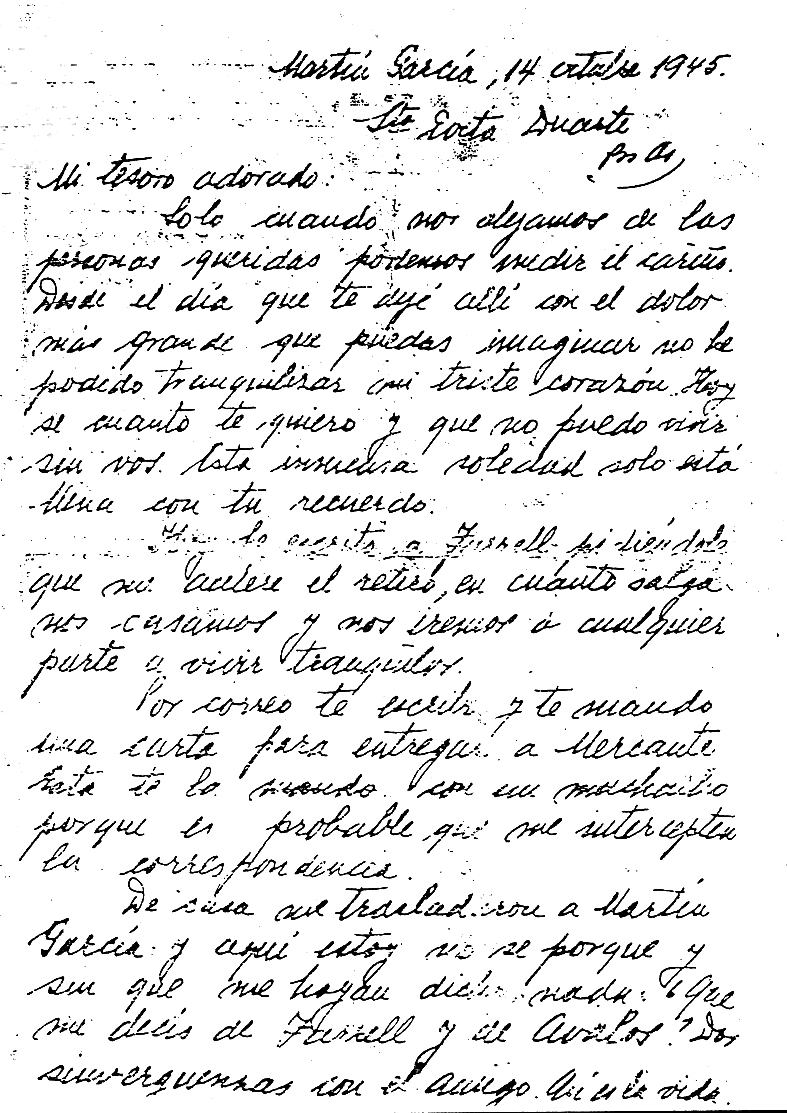 Martín García, 14 octubre 1945.
Sta Evita Duarte
Bs As
Mi tesoro adorado:
Solo cuando nos alejamos de las
personas queridas podemos medir el cariño.
Desde el día que te dejé allí con el dolor
más grande que puedas imaginar no he
podido tranquilizar mi triste corazón. Hoy
se cuanto te quiero y que no puedo vivir
sin vos. Esta inmensa soledad solo está
llena con tu recuerdo.
Hoy he escrito a Farrell pidiéndole
que me acelere el retiro, en cuánto salga
nos casamos y nos iremos a cualquier
parte a vivir tranquilos.
Por correo te escribo y te mando
una carta para entregar a Mercante
Esta te la mando con un muchacho
porque es probable que me intercepten
la correspondencia.
De casa me trasladaron a Martín
García y aquí estoy no se porque y
sin que me hayan dicho nada. ¿Que
me decís de Farrell y de Avalos? Dos
sinverguenzas con el amigo. Así es la vida.